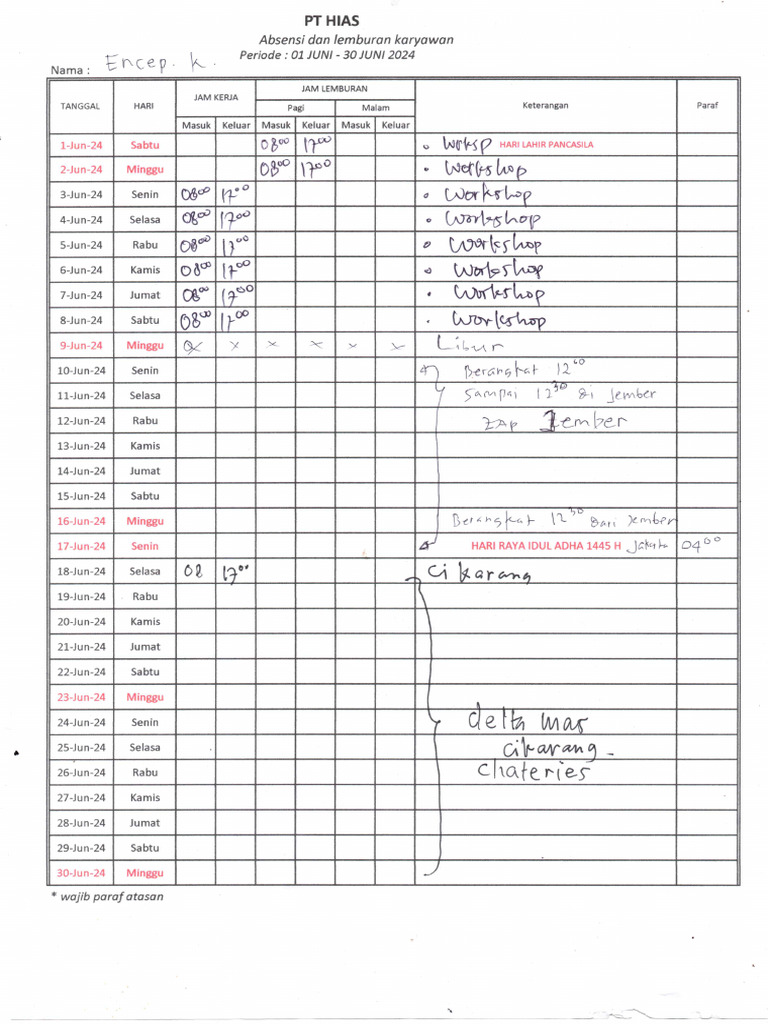 PT HIAS
Absensi dan lemburan karyawan
Periode : 01 JUNI - 30 JUNI 2024
Nama : Encep. k.
TANGGAL HARI JAM KERJA JAM LEMBURAN Keterangan Paraf
Pagi Malam
Masuk Keluar Masuk Keluar Masuk Keluar
1-Jun-24 Sabtu 08⁰⁰ 17⁰⁰ worksp HARI LAHIR PANCASILA
2-Jun-24 Minggu 08⁰⁰ 17⁰⁰ Workshop
3-Jun-24 Senin 08⁰⁰ 17⁰⁰ Workshop
4-Jun-24 Selasa 08⁰⁰ 17⁰⁰ Workshop
5-Jun-24 Rabu 08⁰⁰ 17⁰⁰ Workshop
6-Jun-24 Kamis 08⁰⁰ 17⁰⁰ Workshop
7-Jun-24 Jumat 08⁰⁰ 17⁰⁰ Workshop
8-Jun-24 Sabtu 08⁰⁰ 17⁰⁰ Workshop
9-Jun-24 Minggu x x x x x x Libur
10-Jun-24 Senin Berangkat 12⁰⁰
11-Jun-24 Selasa Sampai 12³⁰ di Jember
12-Jun-24 Rabu ZAP Jember
13-Jun-24 Kamis
14-Jun-24 Jumat
15-Jun-24 Sabtu
16-Jun-24 Minggu Berangkat 12³⁰ dari Jember
17-Jun-24 Senin HARI RAYA IDUL ADHA 1445 H Jakarta 04⁰⁰
18-Jun-24 Selasa 08 17⁰⁰ Cikarang
19-Jun-24 Rabu
20-Jun-24 Kamis
21-Jun-24 Jumat
22-Jun-24 Sabtu
23-Jun-24 Minggu
24-Jun-24 Senin delta mas
25-Jun-24 Selasa cikarang
26-Jun-24 Rabu Chateries
27-Jun-24 Kamis
28-Jun-24 Jumat
29-Jun-24 Sabtu
30-Jun-24 Minggu
* wajib paraf atasan